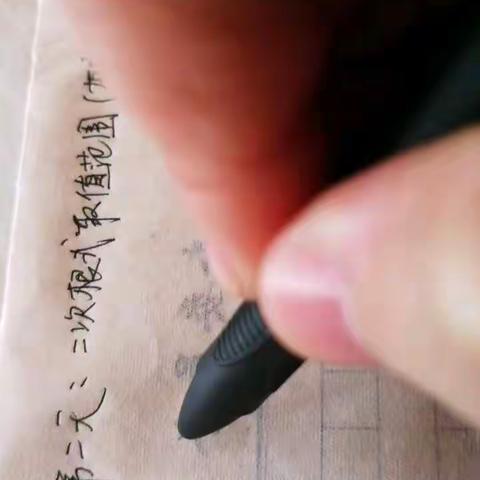 第二天：二次根式取值范围（